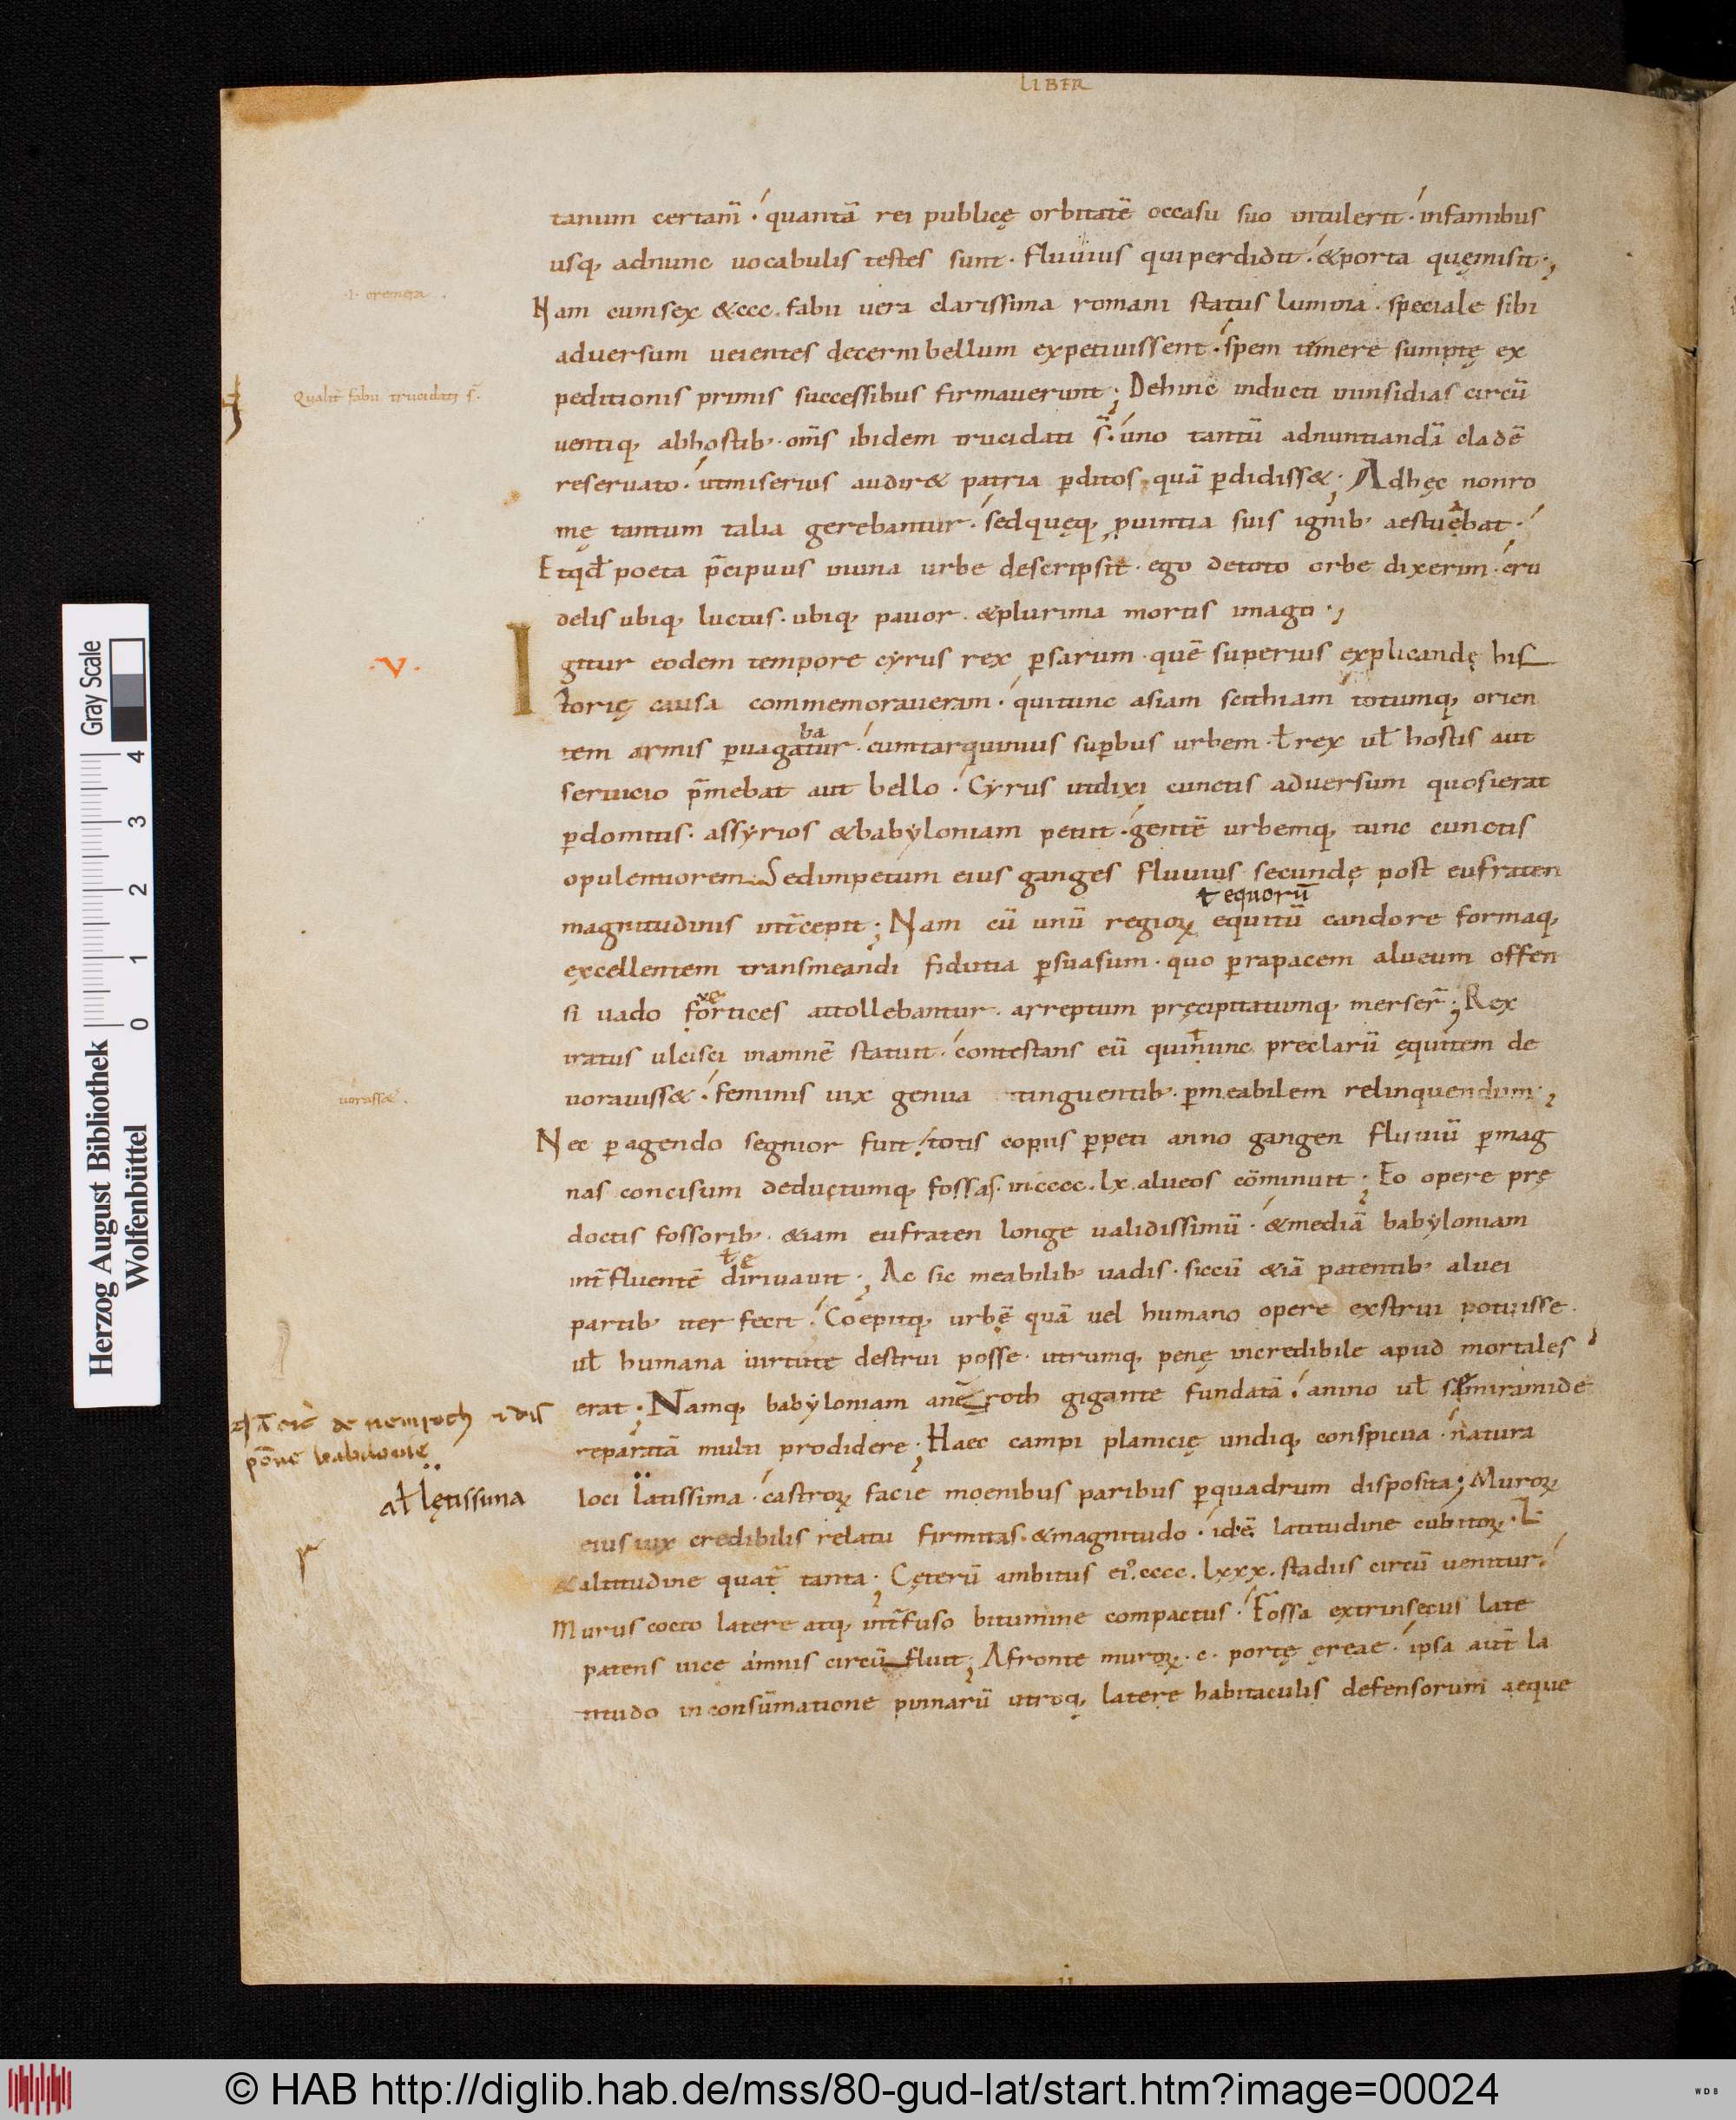 LIBER
tanum certam̄. quantā rei publicę orbitatē occasu suo intulerit. infamibus
usq; adnunc uocabulis testes sunt. fluuius qui perdidit. &porta quęmisit;
Nam cum sex &ccc. fabii uera clarissima romani status lumina. speciale sibi
aduersum ueientes decerni bellum expetiuissent. spem timere sumptę ex
peditionis primis successibus firmauerunt; Dehinc inducti ininsidias circū
uentiq; abhostib; om̄s ibidem trucidati s̄. uno tantū adnuntiandā cladē
reseruato. utmiserius audir& patria p̱ditos quā p̱didiss&; Adhęc nonro
mę tantum talia gerebantur. sedquęq; ꝓuintia suis ignib; aestuebat.
a
Etqd̄ poeta p̄cipuus inuna urbe descripsit. ego detoto orbe dixerim. cru
delis ubiq; luctus. ubiq; pauor. &plurima mortis imago;
·V·
Igitur eodem tempore cyrus rex p̱sarum. quē superius explicandę his
torię causa commemoraueram. quitunc asiam scithiam totumq; orien
ba
tem armis p̱uagatur. cumtarquinius sup̱bus urbem. ł rex uł hostis aut
seruicio p̄mebat aut bello. Cyrus utdixi cunctis aduersum quosierat
p̱domitis. assyrios &babyloniam petit. gentē urbemq; tunc cunctis
opulentiorem. Sedimpetum eius ganges fluuius secundę post eufraten
ł equorū
magnitudinis int̄cepit; Nam cū unū regioꝝ equitū candore formaq;
excellentem transmeandi fidutia p̱suasum. quo p̱rapacem alueum offen
si uado fortices attollebantur. arreptum pręcipitatumq; merser̄; Rex
iratus ulcisci inamnē statuit. contestans eū quinunc preclarū equitem de
uorauiss&. feminis uix genua tinguentib; p̱meabilem relinquendum;
uorass&.
Nec p̱agendo segnior fuit. totis copiis p̱peti anno gangen fluuiū p̱mag
nas concisum deductumq; fossas. incccc.lx alueos cōminuit; Eo opere prę
doctis fossorib; &iam eufraten longe ualidissimū. &mediā babyloniam
ł e
int̄fluentē diriuauit; Ac sic meabilib; uadis. siccū &iā patentib; aluei
partib; iter fecit. Coepitq; urbē quā uel humano opere exstrui potuisse.
uł humana uirtute destrui posse. utrumq; penę incredibile apud mortales
erat; Namq; babyloniam anēroth gigante fundatā. anino uł semiramide
reparatā multi prodidere; Haec campi planicię undiq; conspicua. natura
loci latissima. castroꝝ facie moenibus paribus p̱quadrum disposita; Muroꝝ
ał lętissima
eius uix credibilis relatu firmitas. &magnitudo. idē latitudine cubitoꝝ. L
&altitudine quat̄ tanta; Cęterū ambitus ei9. cccc.lxxx. stadiis circū uenitur.
Murus cocto latere atq; int̄fuso bitumine compactus. Fossa extrinsecus late
patens uice amnis circū fluit; Afronte muroꝝ. c. portę ereae. ipsa aut̄ la
titudo inconsūmatione pinnarū utroq; latere habitaculis defensorum aeque
Qualit̄ fabii trucidati s̄.
ii
Gray Scale
4 3 2 1 0
Herzog August Bibliothek
Wolfenbüttel
© HAB http://diglib.hab.de/mss/80-gud-lat/start.htm?image=00024
WDB